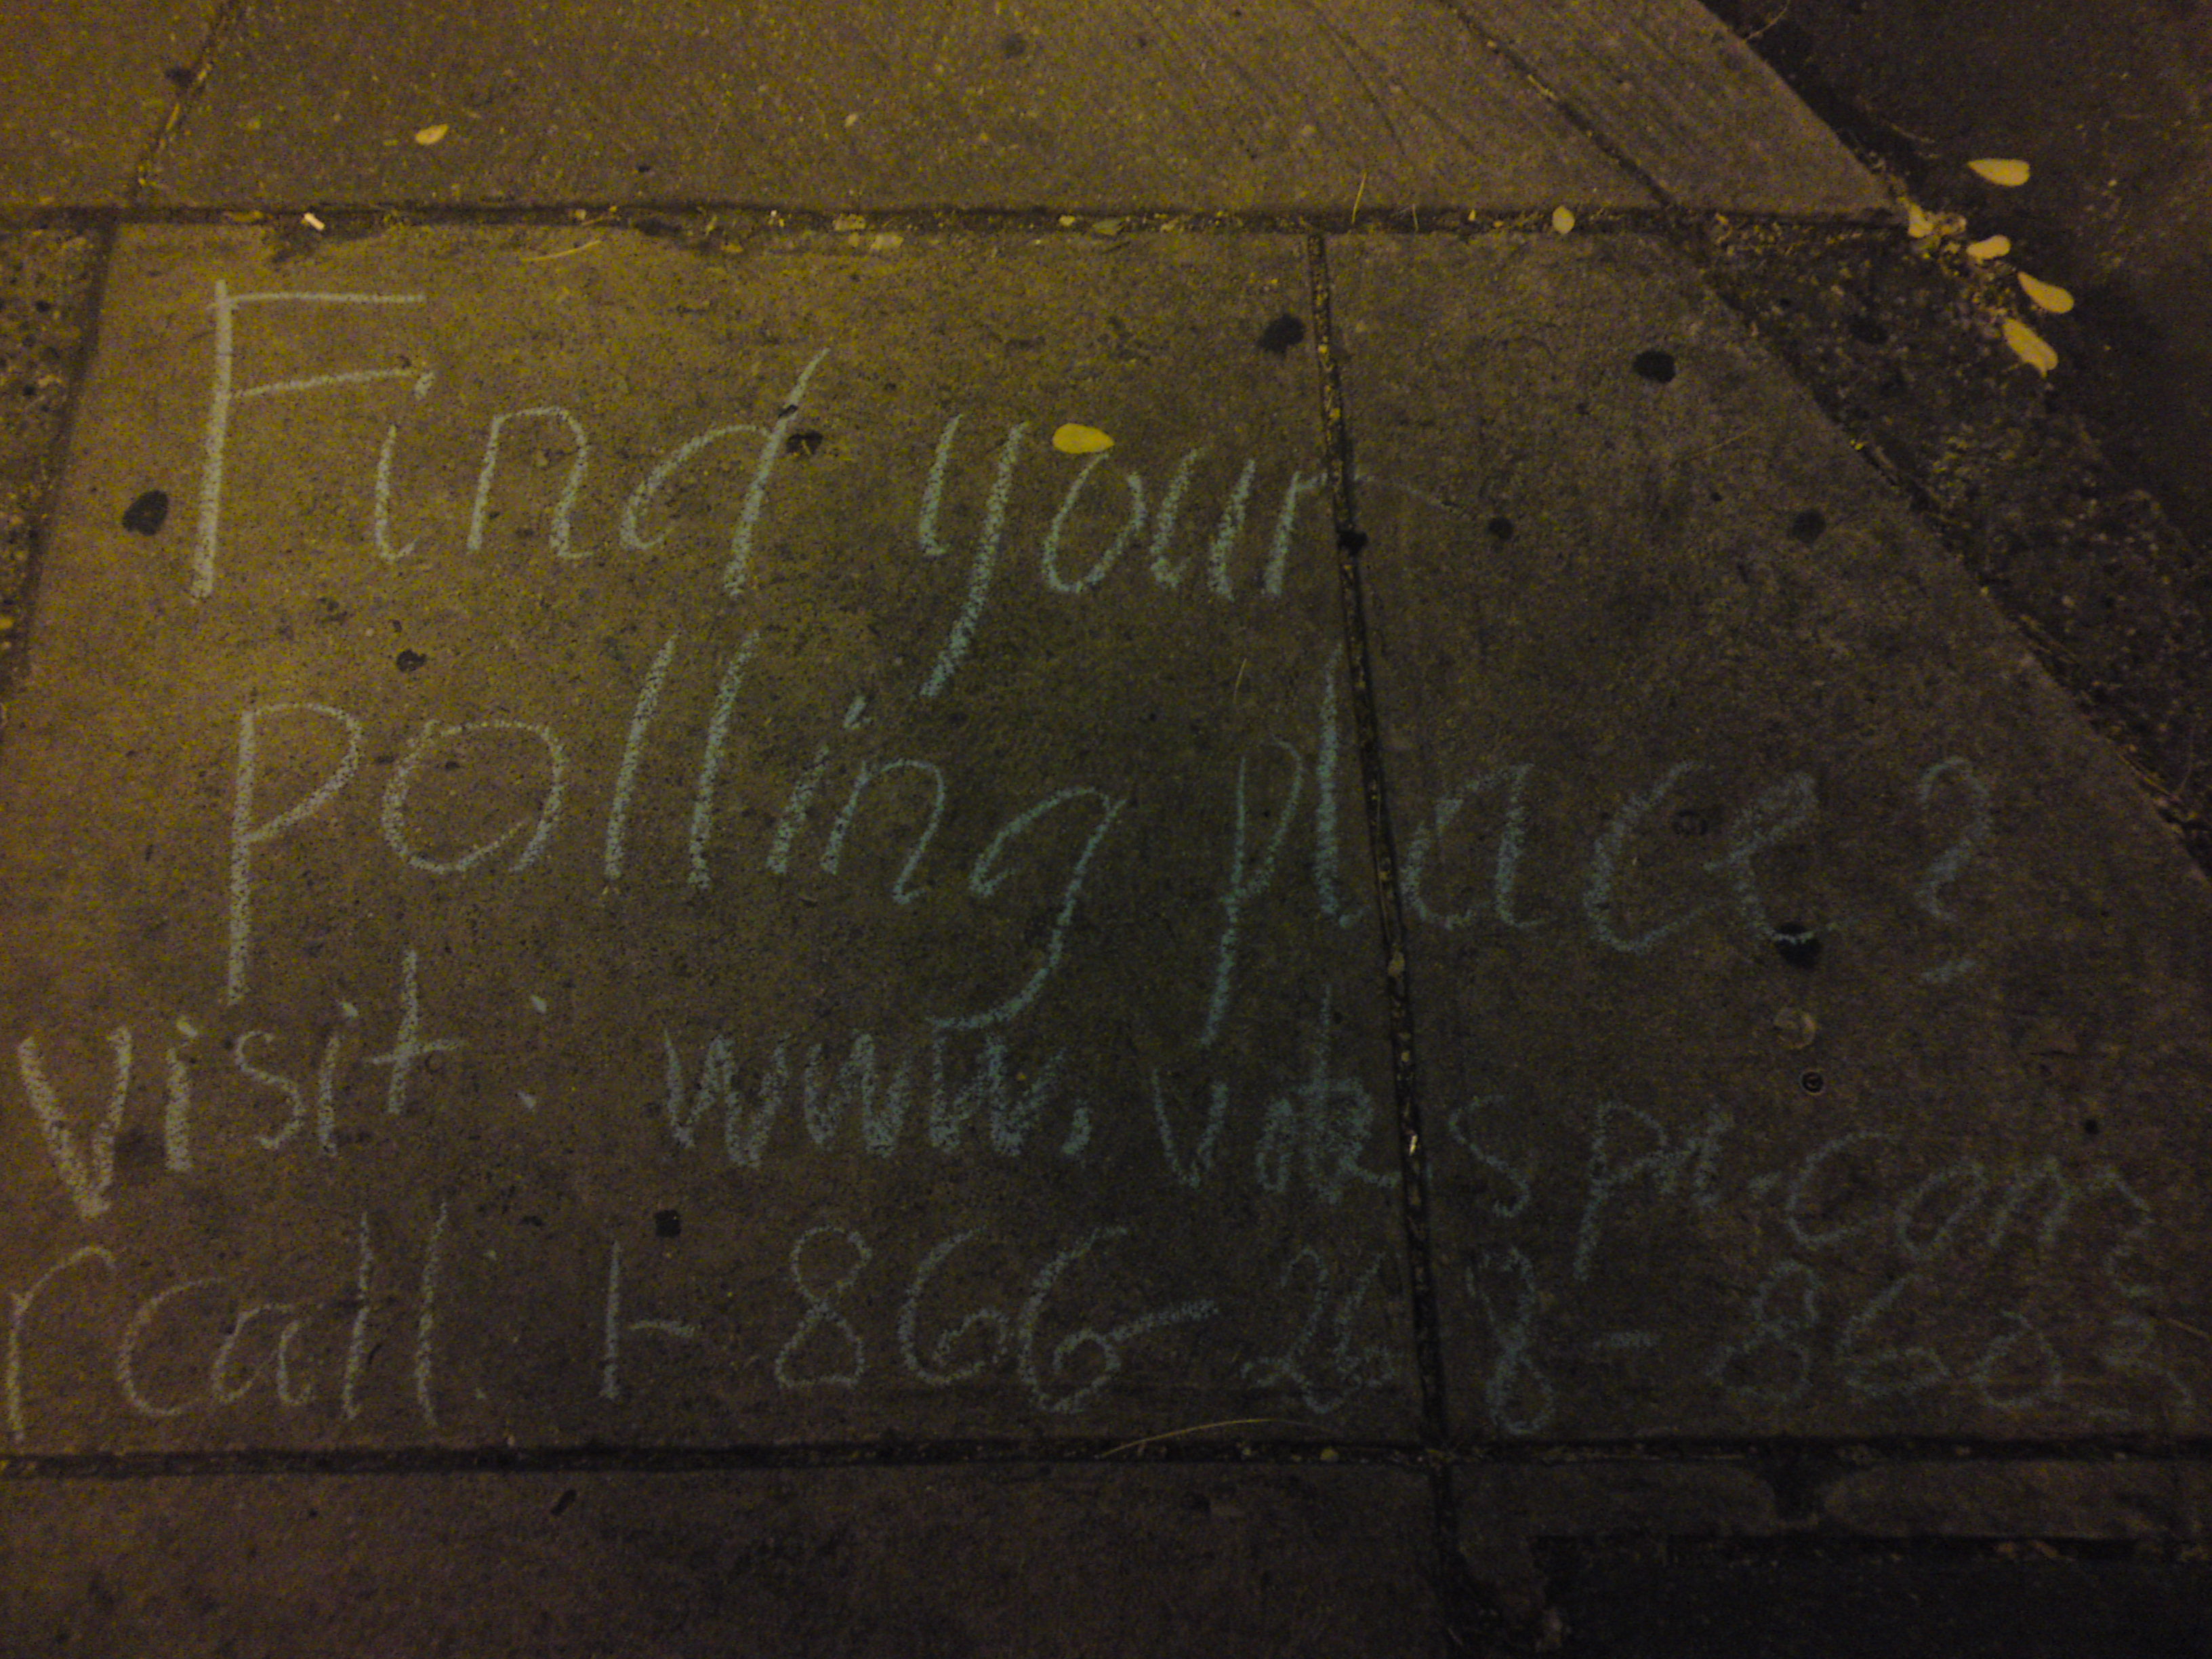 Find your
polling place?
visit: www.votespa.com
r call 1-866-268-8603